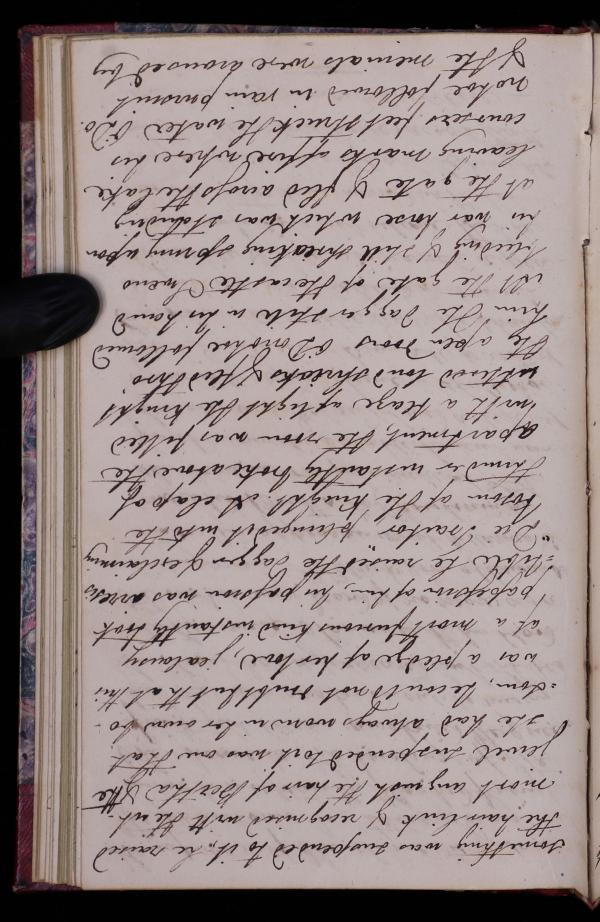 something was suspended to it, he raised
the hair link & recognised with the ut-
most anguish the hair of Bertha & the
jewel suspended to it was one that
she had always worn in her own bo-
=som, he could not doubt but that this
was a pledge of her love, jealousy
of a most furious kind instantly took
possession of him, his passion was irresis
=tible he raised the dagger & exclaiming
"Die Traitor" plunged it into the
bosom of the Knight. A clap of
thunder instantly broke above the
apartment, the room was filled
with a blaze of light the Knight
uttered loud shrieks & fled thro'
the open doors O'Donohoe followed
him the dagger still in his hand
At the gate of the castle
bleeding & still shrieking sprung upon
his war horse which was standing
at the gate & fled across the lake
leaving marks of fire where his
coursers feet struck the water O'Do.
nohoe followed in vain pursuit
& the menials were aroused by